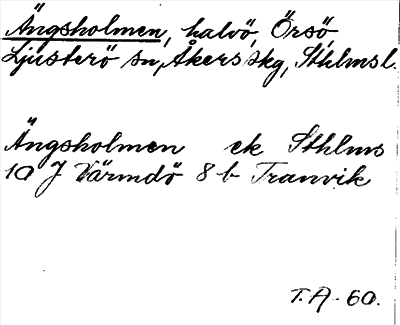 Ängsholmen, halvö, Örsö,
Ljusterö sn, Åkers skg, Sthlmsl.
Ängsholmen ek Sthlms
10 J Värmdö 8 b Tranvik
T.A. 60.